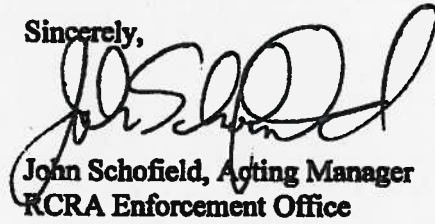 Sincerely,
John Schofield
John Schofield, Acting Manager
RCRA Enforcement Office